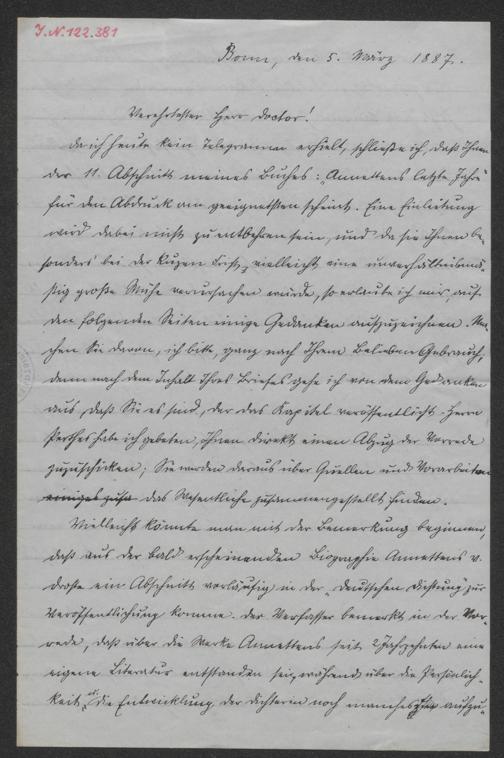 J.N.122.381
Bonn, den 5. März 1887.
Verehrtester Herr Doctor!
Da ich heute kein Telegramm erhielt, schließe ich, daß Ihnen
der 11. Abschnitt meines Buches: "Annettens letzte Jahre"
für den Abdruck am geeignetsten scheint. Eine Einleitung
wird dabei nicht zu entbehren sein, und da sie Ihnen be-
sonders bei der kurzen Frist, vielleicht eine unverhältnismä-
ßig große Mühe verursachen würde, so erlaube ich mir, auf
den folgenden Seiten einige Gedanken aufzuzeichnen. Ma-
chen Sie davon, ich bitte, ganz nach Ihrem Belieben Gebrauch,
denn nach dem Inhalt Ihres Briefes gehe ich von dem Gedanken
aus, daß Sie es sind, der das Kapitel veröffentlicht. Herrn
Perthes habe ich gebeten, Ihnen direkt einen Abzug der Vorrede
zuzuschicken; Sie werden daraus über Quellen und Vorarbeiten
einiges zusa das Wesentliche zusammengestellt finden.
Vielleicht könnte man mit der Bemerkung beginnen,
daß aus der bald erscheinenden Biographie Annettens v.
Droste ein Abschnitt vorläufig in der "Deutschen Dichtung" zur
Veröffentlichung komme. Der Verfasser bemerkt in der Vor-
rede, daß über die Werke Annettens seit 2 Jahrzehnten eine
eigene Literatur entstanden sei, während über die Persönlich-
keit die Entwicklung der Dichterin noch manches aufzu-